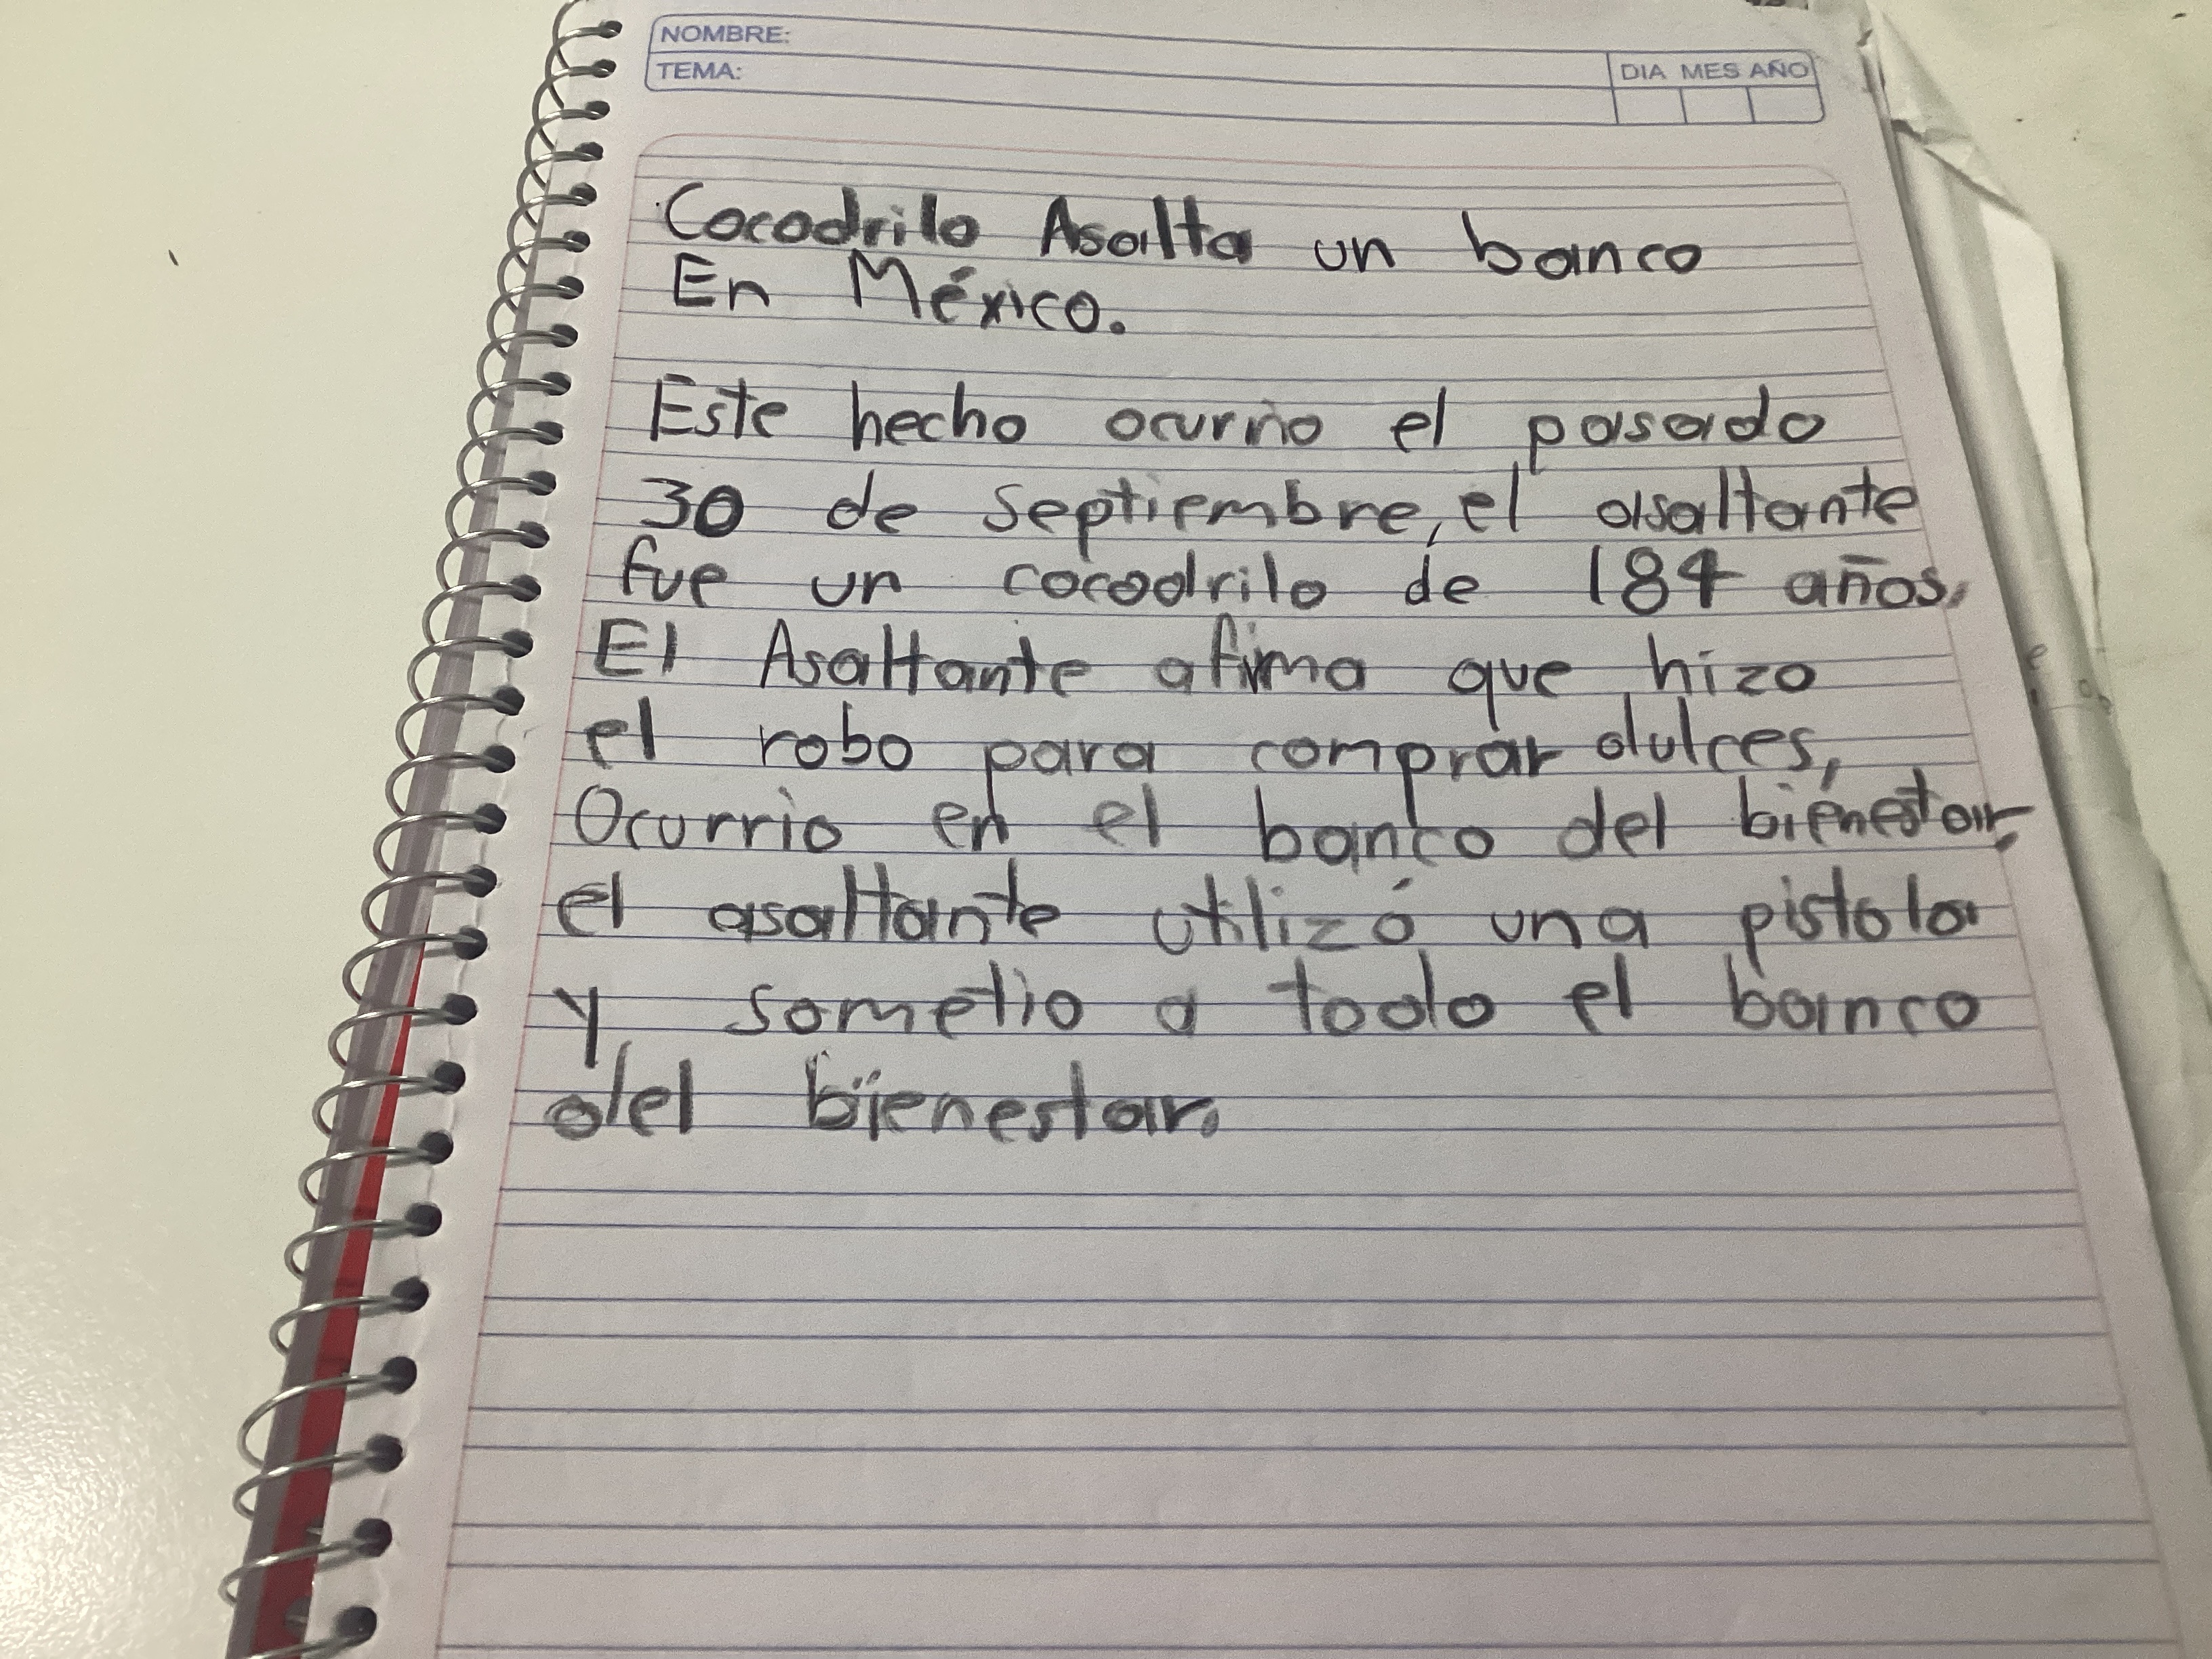 NOMBRE:
TEMA:
DIA MES AÑO
Cocodrilo Asalta un banco
En México.
Este hecho ocurrio el pasado
30 de septiembre, el asaltante
fue un cocodrilo de 184 años,
El Asaltante afirma que hizo
el robo para comprar dulces,
Ocurrio en el banco del bienestar,
el asaltante utilizó una pistola
y sometio a todo el banco
del bienestar.